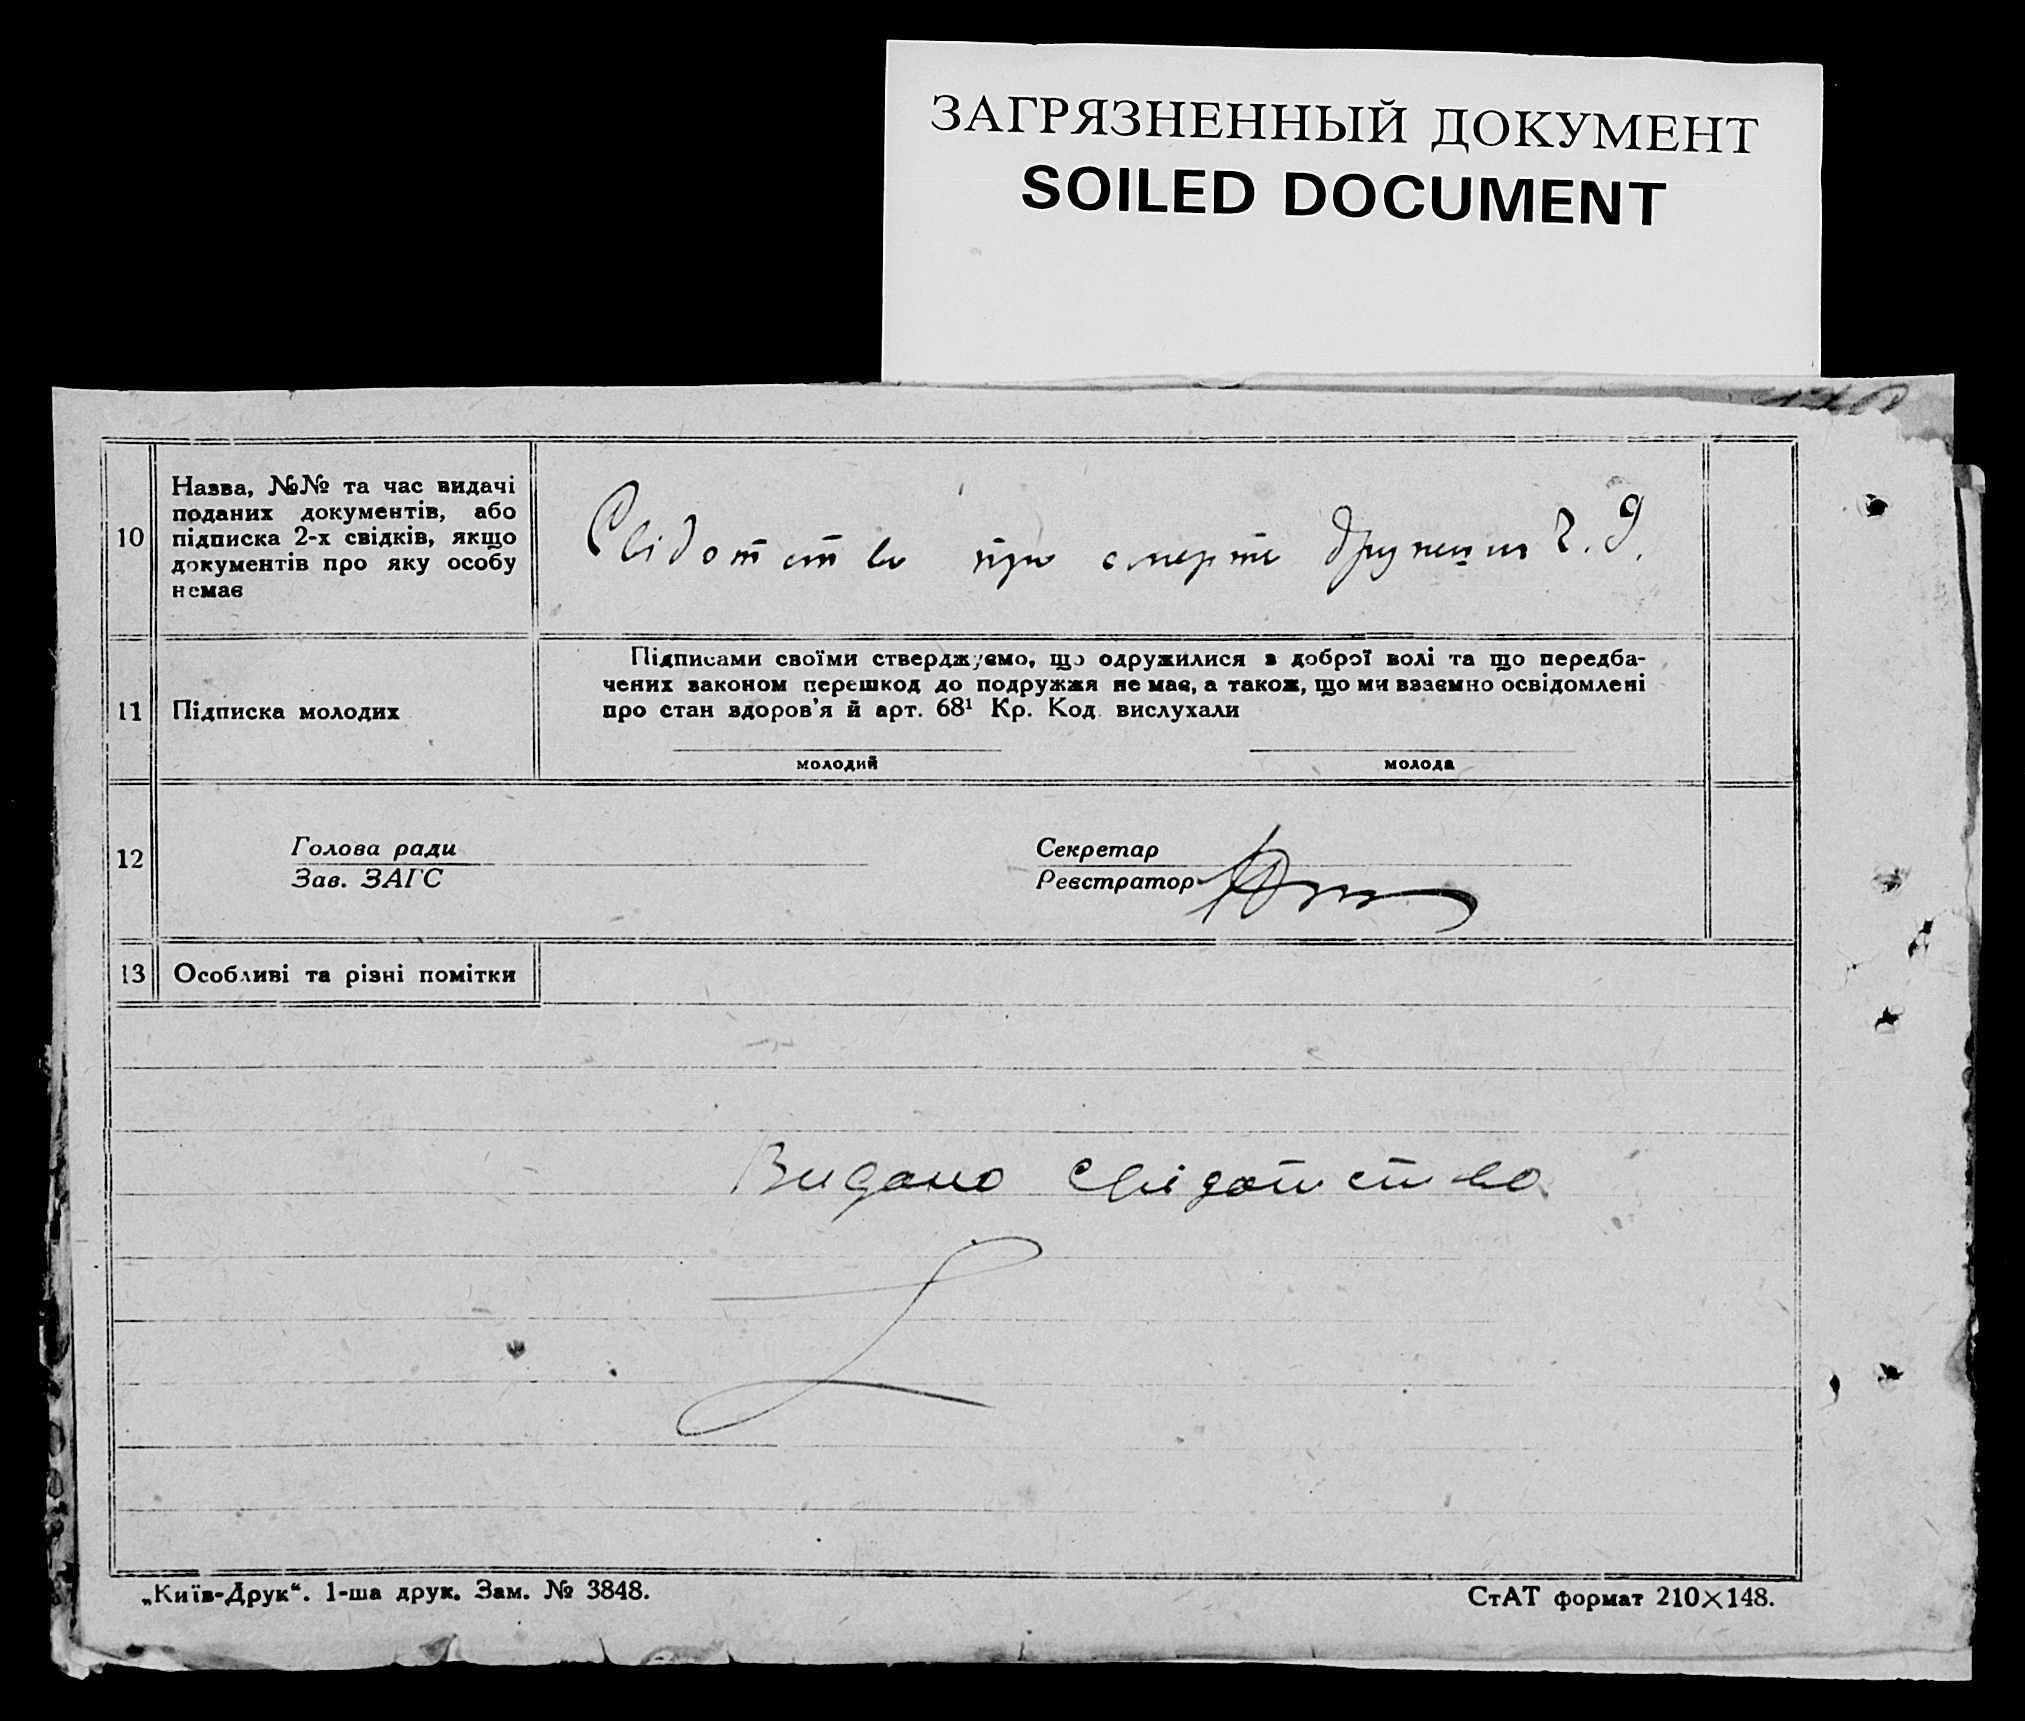 ЗАГРЯЗНЕННЫЙ ДОКУМЕНТ
SOILED DOCUMENT
10
Назва, №№ та час видачі
поданих документів, або
підписка 2-х свідків, якщо
документів про яку особу
немає
Свідотство про смерть ч. 9.
11
Підписка молодих
Підписами своїми стверджуємо, що одружилися з доброї волі та що передба-
чених законом перешкод до подружжя немає, а також, що ми взаємно освідомлені
про стан здоров'я й арт. 68¹ Кр. Код. вислухали
молодий молода
12
Голова ради
Зав. ЗАГС
Секретар
Реєстратор
13 Особливі та різні помітки
Видано свідотство
„Київ-Друк“. 1-ша друк. Зам. № 3848.
СтАТ формат 210×148.